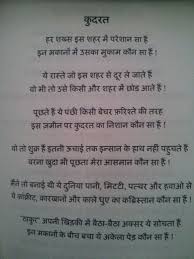 कुदरत
हर शख्स इस शहर में परेशान सा हैं
इन मकानों में उसका मुकाम कौन सा हैं !
ये रास्ते जो इस शहर से दूर ले जाते हैं
वो भी तो उसे किसी और शहर में छोड़ आते हैं !
पूछते हैं ये पंछी किसी बेघर फ़रिश्ते की तरह
इस ज़मीन पर कुदरत का निशान कौन सा हैं !
वो तो शुक्र हैं इतनी ऊचाई तक इन्सान के हाथ नहीं पहुचते हैं
वरना खुदा भी पूछता मेरा आसमान कौन सा हैं !
मैंने तो बनाई थी ये दुनिया पानी, मिटटी, पत्थर और हवाओ से
ये सांक्रीट, कारखानो और काले धुए का कब्रिस्तान कौन सा हैं !
"ठाकुर" अपनी खिड़की में बैठा-बैठा अक्सर ये सोचता हैं
इन मकानों के बीच बचा ये अकेला पेड़ कौन सा हैं !